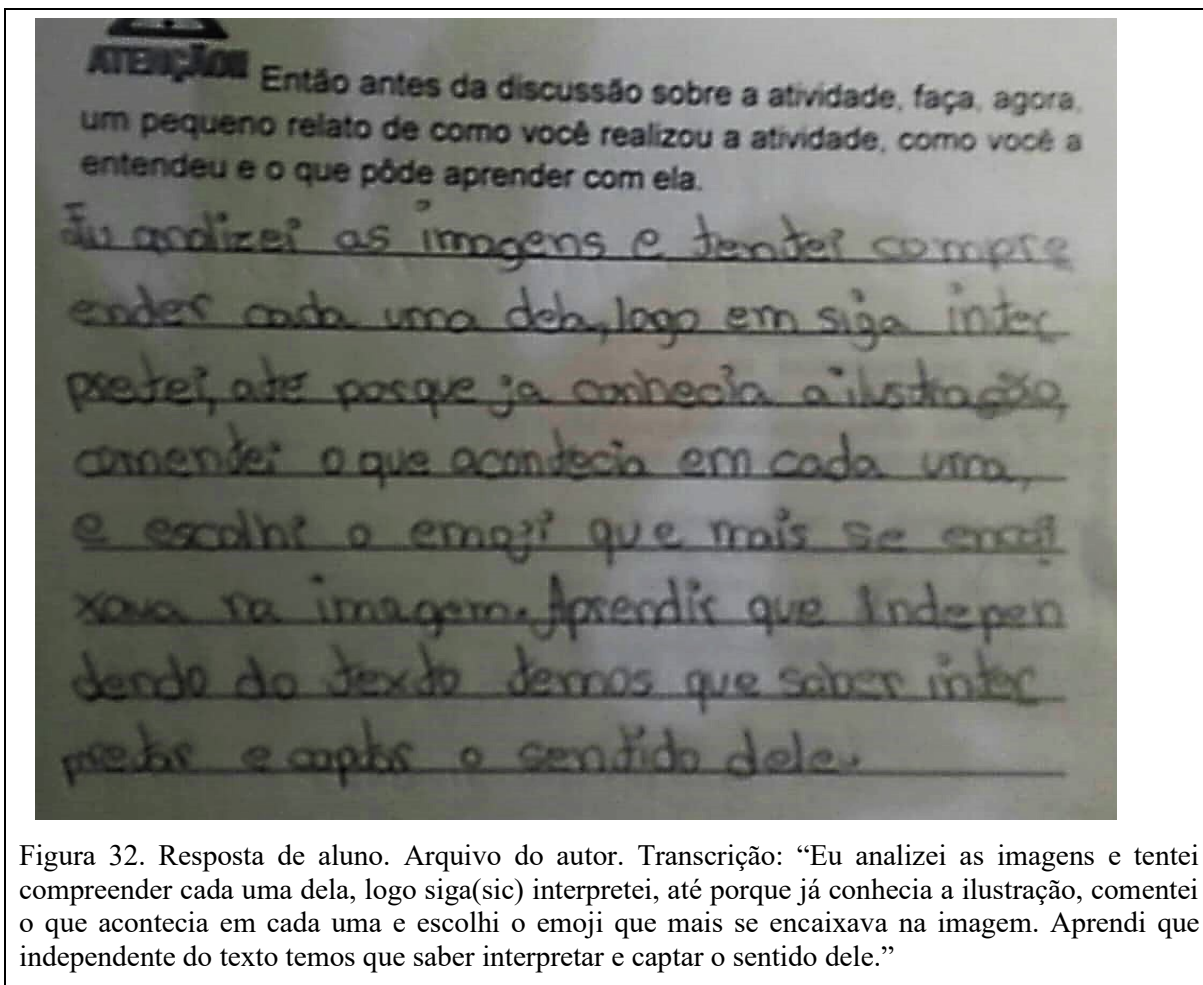 ATENÇÃO!! Então antes da discussão sobre a atividade, faça, agora,
um pequeno relato de como você realizou a atividade, como você a
entendeu e o que pôde aprender com ela.
Eu analizei as imagens e tentei compre
ender cada uma dela, logo em siga inter
pretei, até porque ja conhecia a ilustração,
comentei o que acontecia em cada uma,
e escolhi o emoji que mais se encai
xava na imagem. Aprendir que Indepen
dendo do texto temos que saber inter
pretar e captar o sentido dele.
Figura 32. Resposta de aluno. Arquivo do autor. Transcrição: “Eu analizei as imagens e tentei
compreender cada uma dela, logo siga(sic) interpretei, até porque já conhecia a ilustração, comentei
o que acontecia em cada uma e escolhi o emoji que mais se encaixava na imagem. Aprendi que
independente do texto temos que saber interpretar e captar o sentido dele.”